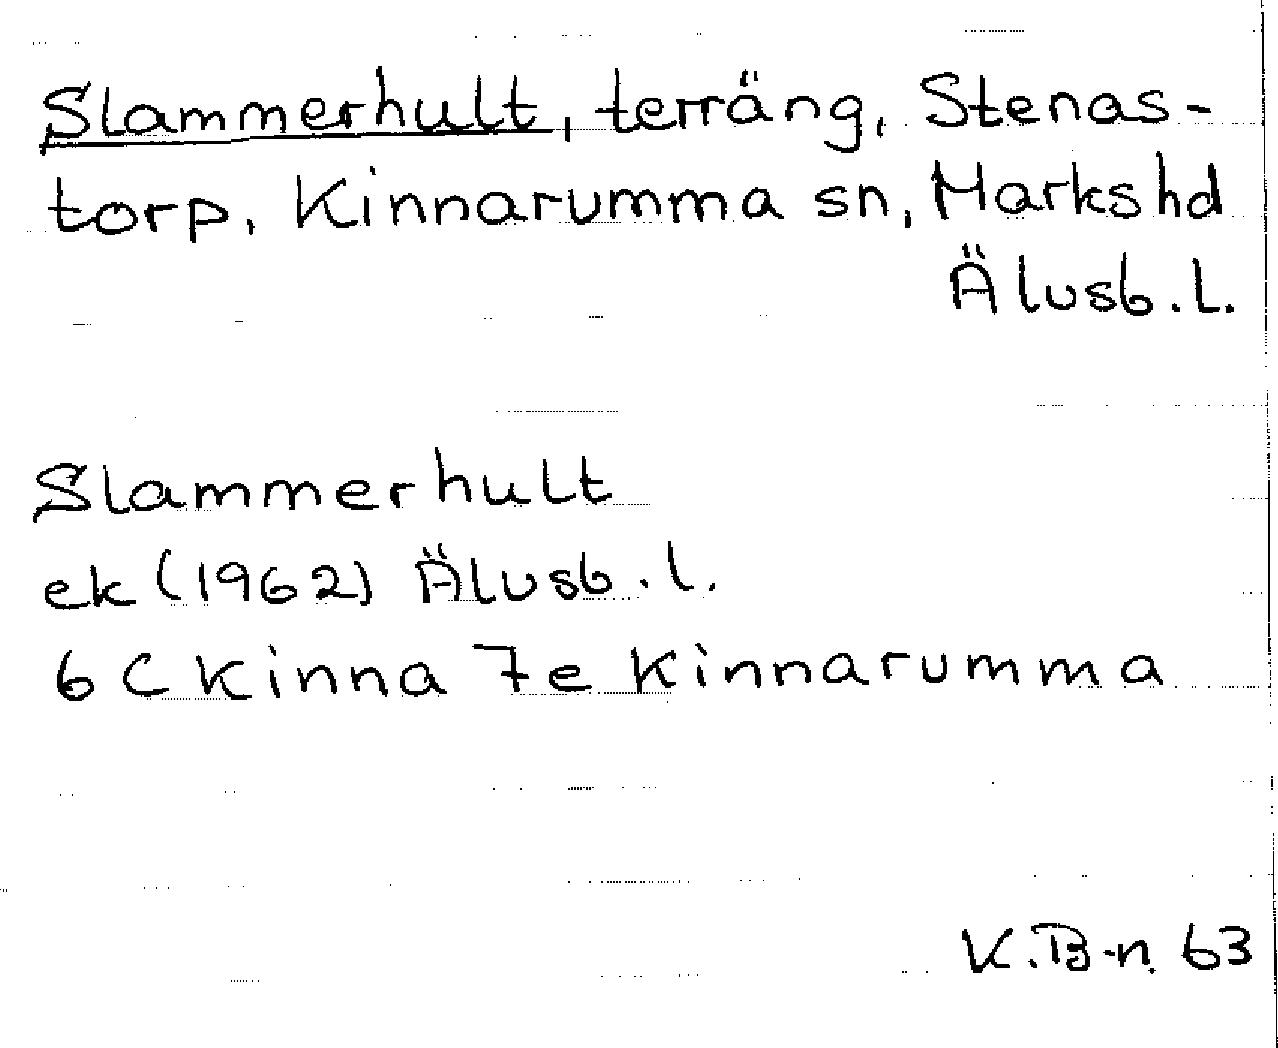 Slammerhult, terräng, Stenas-
torp, Kinnarumma sn, Marks hd
Älvsb. l.
Slammerhult
ek (1962) Älvsb. l.
6 C Kinna 7e Kinnarumma
K.B-n. 63